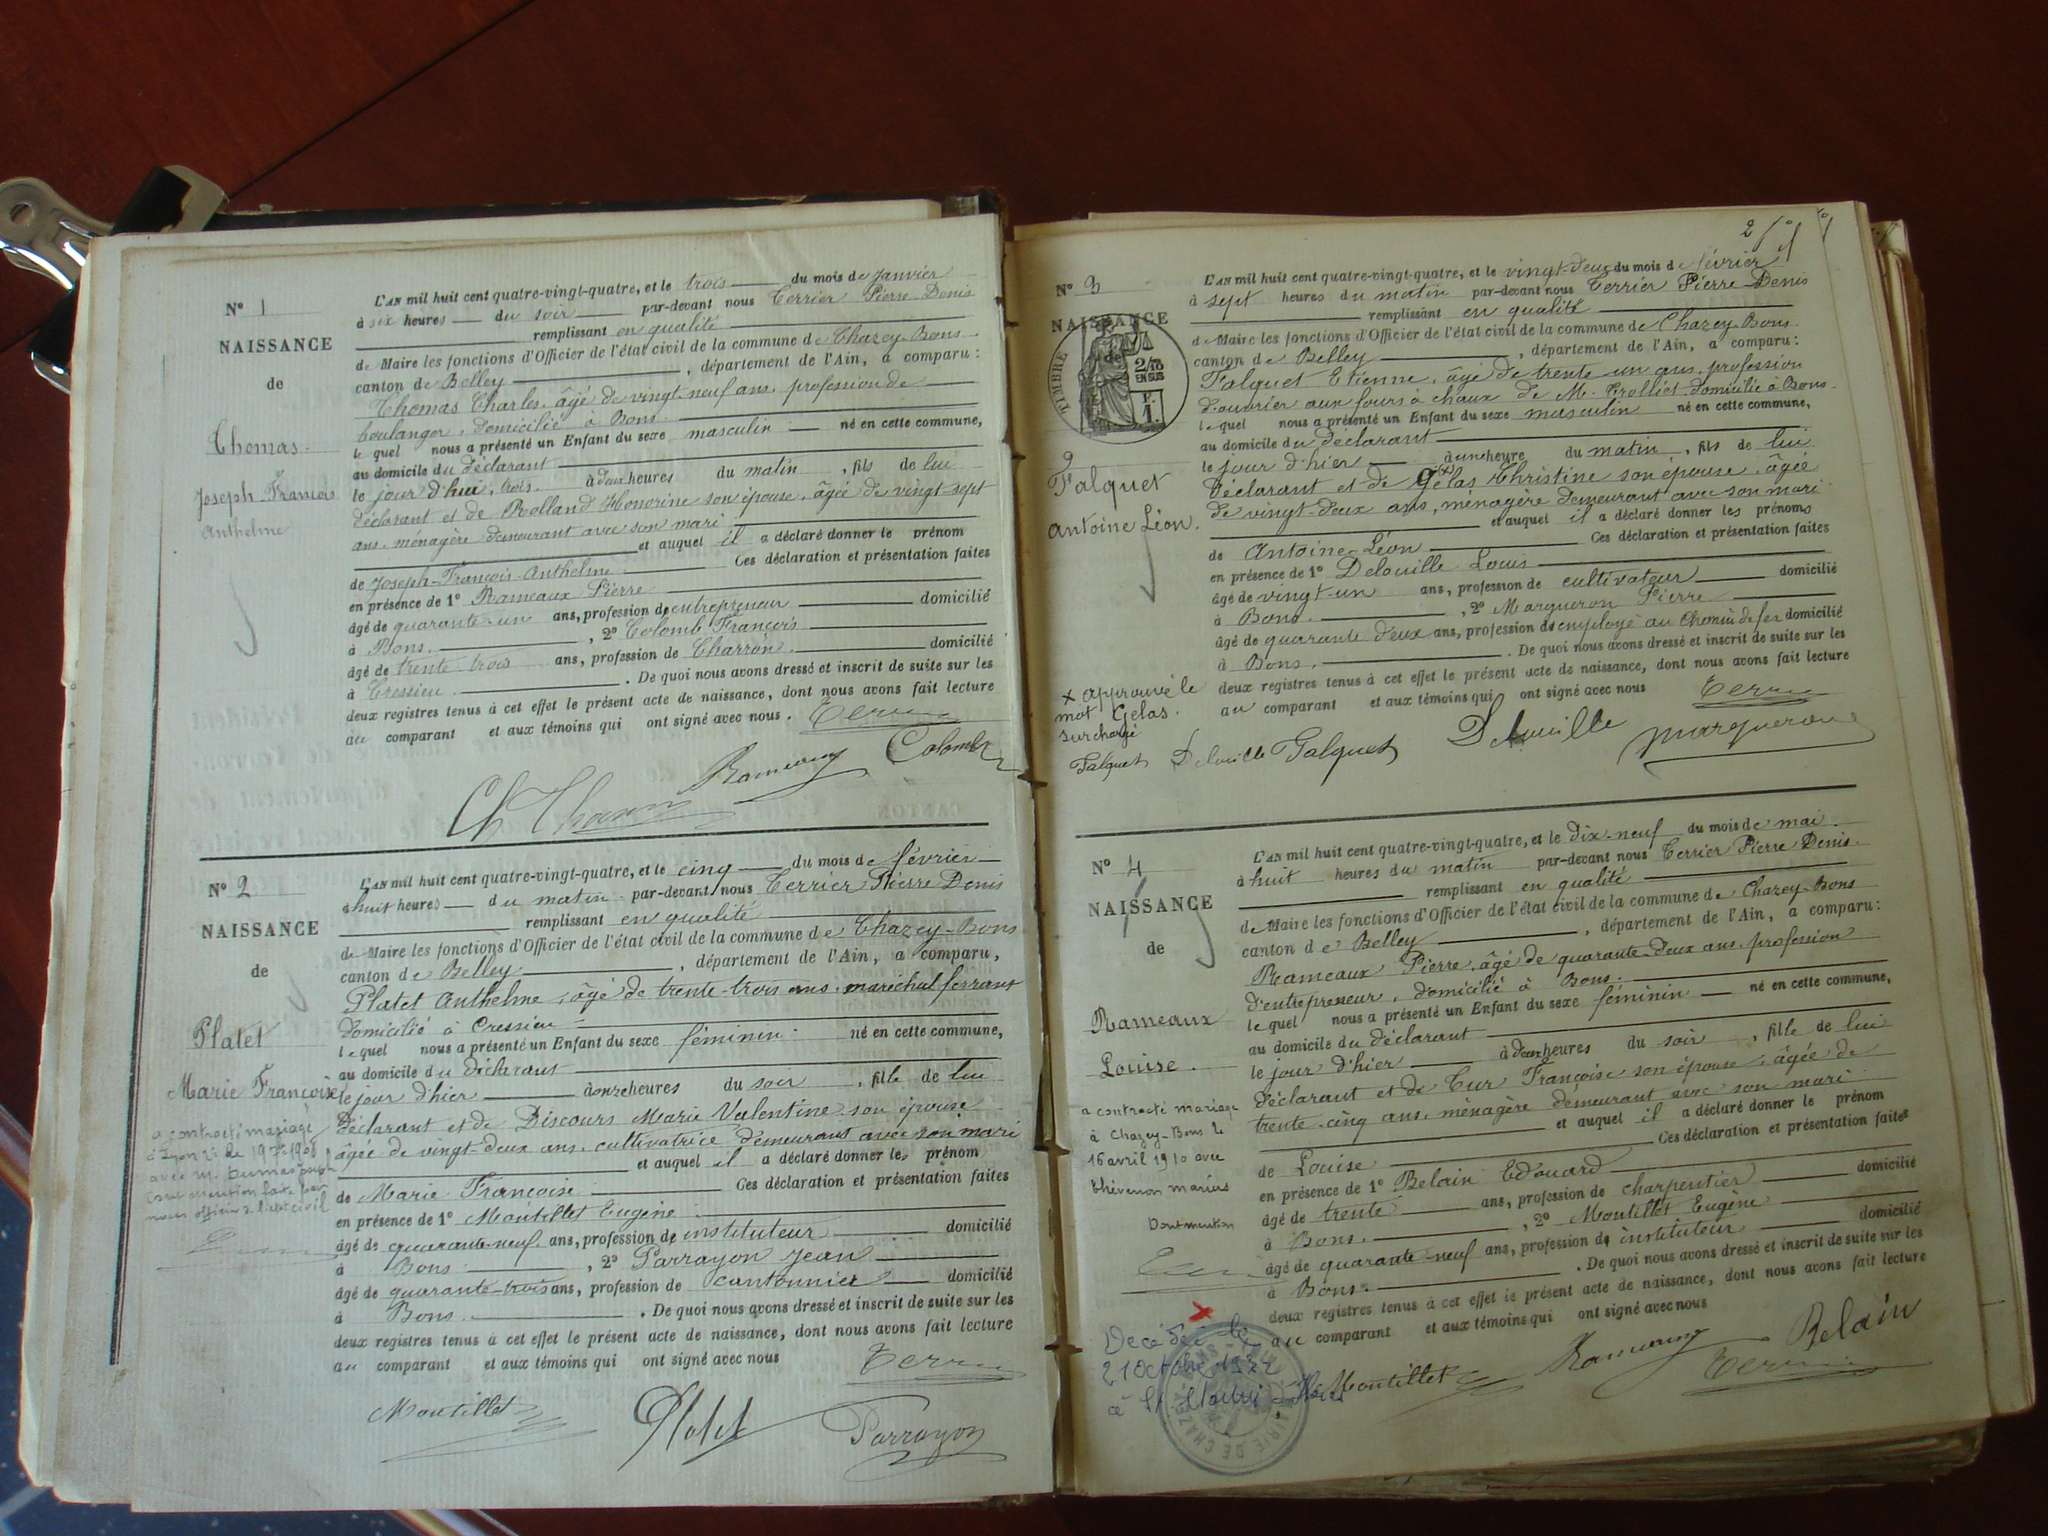 N° 1
NAISSANCE
de
Thomas
Joseph François
Anthelme
L'AN mil huit cent quatre-vingt-quatre, et le trois du mois de Janvier
à six heures du soir par-devant nous Terrier Pierre Denis
remplissant en qualité
de Maire les fonctions d'Officier de l'état civil de la commune de Chazey-Bons
canton de Belley, département de l'Ain, a comparu:
Thomas Charles, âgé de vingt-neuf ans, profession de
boulanger, domicilié à Bons
le quel nous a présenté un Enfant du sexe masculin né en cette commune,
au domicile du déclarant
le jour d'hui, trois à deux heures du matin, fils de lui
déclarant et de Rolland Honorine son épouse, âgée de vingt-sept
ans, ménagère demeurant avec son mari
et auquel il a déclaré donner le prénom
de Joseph-François-Anthelme Ces déclaration et présentation faites
en présence de 1° Rameaux Pierre
âgé de quarante-un ans, profession d'entrepreneur domicilié
à Bons, 2° Colomb François
âgé de trente-trois ans, profession de Charron domicilié
à Cressieu. De quoi nous avons dressé et inscrit de suite sur les
deux registres tenus à cet effet le présent acte de naissance, dont nous avons fait lecture
au comparant et aux témoins qui ont signé avec nous. Terrier
Ch Thomas Rameaux Colomb
N° 2
NAISSANCE
de
Platet
Marie Françoise
a contracté mariage
à Lyon
nous officier de l'état civil
L'AN mil huit cent quatre-vingt-quatre, et le cinq du mois de février
à huit heures du matin par-devant nous Terrier Pierre Denis
remplissant en qualité
de Maire les fonctions d'Officier de l'état civil de la commune de Chazey-Bons
canton de Belley, département de l'Ain, a comparu,
Platet Anthelme, âgé de trente-trois ans, maréchal ferrant
domicilié à Cressieu
le quel nous a présenté un Enfant du sexe féminin né en cette commune,
au domicile du déclarant
le jour d'hier à onze heures du soir, fille de lui
déclarant et de Discours Marie Valentine son épouse
âgée de vingt-deux ans, cultivatrice demeurant avec son mari
et auquel il a déclaré donner les prénom
de Marie Françoise Ces déclaration et présentation faites
en présence de 1° Montillet Eugène
âgé de quarante-neuf ans, profession de instituteur domicilié
à Bons, 2° Parrayon Jean
âgé de quarante-trois ans, profession de cantonnier domicilié
à Bons. De quoi nous avons dressé et inscrit de suite sur les
deux registres tenus à cet effet le présent acte de naissance, dont nous avons fait lecture
au comparant et aux témoins qui ont signé avec nous Terrier
Montillet Platet Parrayon
2
N° 3
NAISSANCE
de
TIMBRE
2/10
EN SUS
Falquet
Antoine Léon.
x approuvé le
mot Gelas.
surchargé
Falquet Delouille
L'AN mil huit cent quatre-vingt-quatre, et le vingt-deux du mois de février
à sept heures du matin par-devant nous Terrier Pierre Denis
remplissant en qualité
de Maire les fonctions d'Officier de l'état civil de la commune de Chazey-Bons.
canton de Belley, département de l'Ain, a comparu:
Falquet Etienne, âgé de trente un ans, profession
d'ouvrier aux fours à chaux de M. Trolliet domicilié à Bons.
le quel nous a présenté un Enfant du sexe masculin né en cette commune,
au domicile du déclarant
le jour d'hier à une heure du matin, fils de lui
déclarant et de Gelas (x) Christine son épouse, âgée
de vingt-deux ans, ménagère demeurant avec son mari
et auquel il a déclaré donner les prénoms
de Antoine-Léon Ces déclaration et présentation faites
en présence de 1° Delouille Louis
âgé de vingt-un ans, profession de cultivateur domicilié
à Bons, 2° Marqueron Pierre
âgé de quarante deux ans, profession de employé au Chemin de fer domicilié
à Bons. De quoi nous avons dressé et inscrit de suite sur les
deux registres tenus à cet effet le présent acte de naissance, dont nous avons fait lecture
au comparant et aux témoins qui ont signé avec nous Terrier
Falquet Delouille Marqueron
N° 4
NAISSANCE
de
Rameaux
Louise.
a contracté mariage
à Chazey-Bons le
16 avril 1910 avec
Thévenon Marius
Dont mention
Décédée le
21 Octobre
à St
MAIRIE DE CHAZEY-BONS
L'AN mil huit cent quatre-vingt-quatre, et le dix-neuf du mois de mai.
à huit heures du matin par-devant nous Terrier Pierre Denis.
remplissant en qualité
de Maire les fonctions d'Officier de l'état civil de la commune de Chazey-Bons
canton de Belley, département de l'Ain, a comparu:
Rameaux Pierre, âgé de quarante-deux ans, profession
d'entrepreneur, domicilié à Bons.
le quel nous a présenté un Enfant du sexe féminin né en cette commune,
au domicile du déclarant
le jour d'hier à deux heures du soir, fille de lui
déclarant et de Tur Françoise son épouse, âgée de
trente-cinq ans, ménagère demeurant avec son mari
et auquel il a déclaré donner le prénom
de Louise Ces déclaration et présentation faites
en présence de 1° Belain Edouard
âgé de trente ans, profession de charpentier domicilié
à Bons, 2° Montillet Eugène
âgé de quarante-neuf ans, profession de instituteur domicilié
à Bons. De quoi nous avons dressé et inscrit de suite sur les
deux registres tenus à cet effet le présent acte de naissance, dont nous avons fait lecture
au comparant et aux témoins qui ont signé avec nous
Montillet Rameaux Terrier Belain